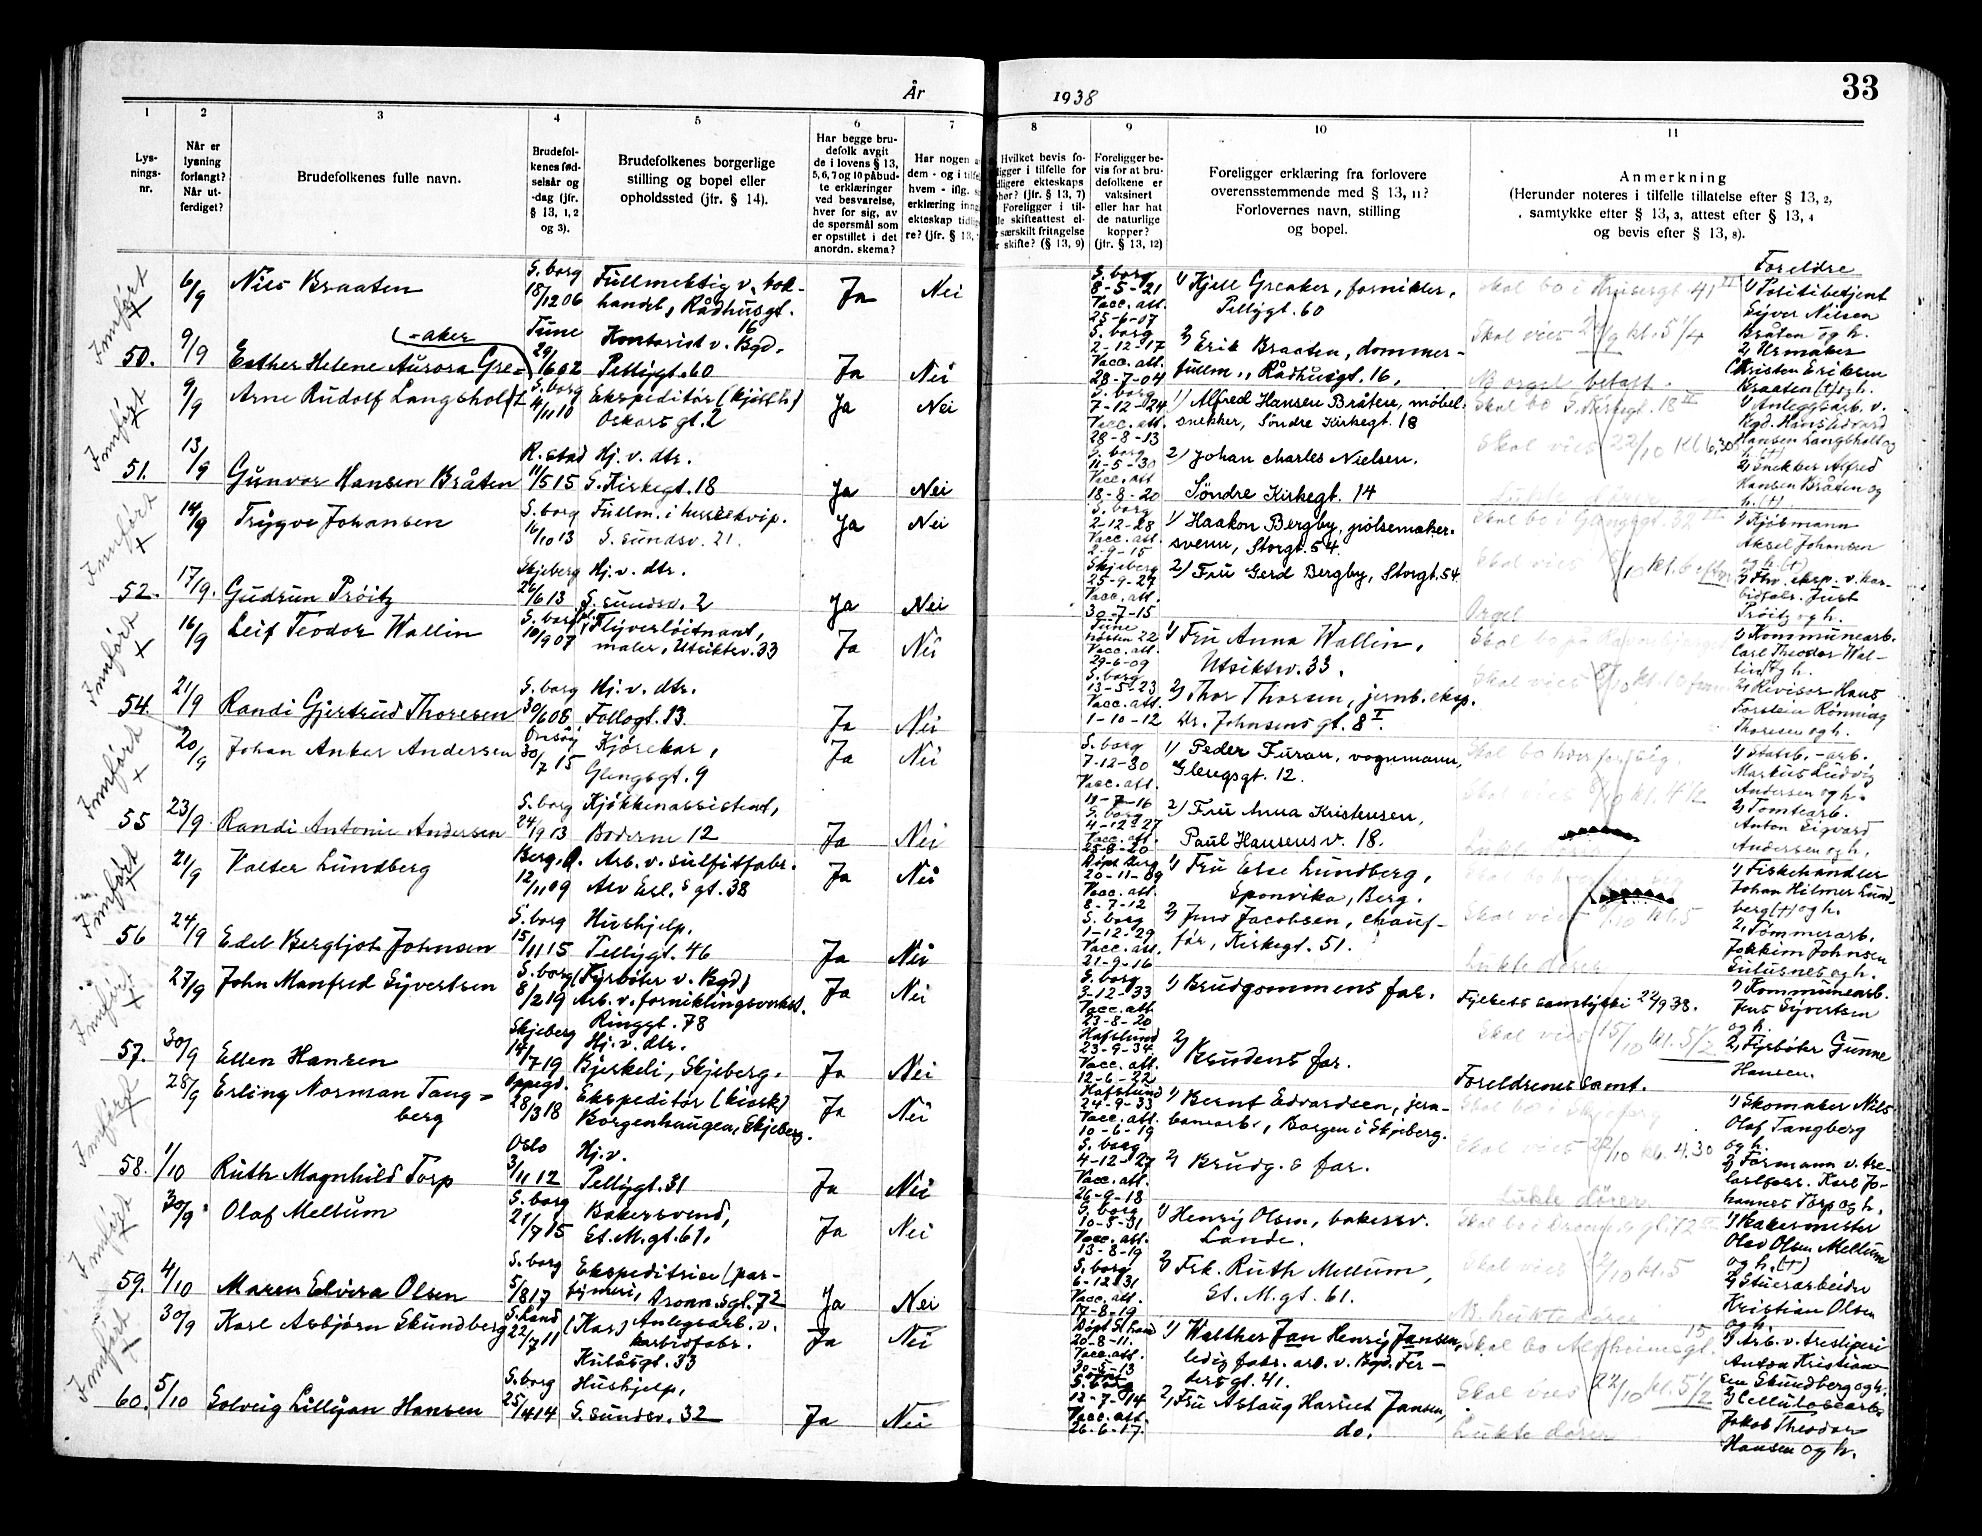 År 1938
33
1 2 3 4 5 6 7 8 9 10 11
Lysnings-nr.
Når er lysning forlangt? Når utferdiget?
Brudefolkenes fulle navn.
Brudefolkenes fødselsår og -dag (jfr. § 13, 1, 2 og 3).
Brudefolkenes borgerlige stilling og bopel eller opholdssted (jfr. § 14).
Har begge brudefolk avgit de i lovens § 13, 5, 6, 7 og 10 påbudte erklæringer ved besvarelse, hver for sig, av de spørsmål som er opstillet i det anordn. skema?
Foreligger bevis for at brudefolkene er vaksinert eller har hat de naturlige kopper? (jfr. § 13, 12)
Foreligger erklæring fra forlovere overensstemmende med § 13, 11? Forlovernes navn, stilling og bopel.
Anmerkning
(Herunder noteres i tilfelle tillatelse efter § 13, 2, samtykke efter § 13, 3, attest efter § 13, 4 og bevis efter § 13, 8).
Foreldre
Innført 6/9 Nils Braaten S. borg 18/12 06 Fullmektig v. bokhandel, Rådhusgt. 16 Ja Nei
S. borg 8-5-21 Vacc. att. 25-6-07 1) Kjell Greaker, fornikler, Pellygt. 60
Skal vies kl. 5 1/4
1) Politibetjent Syver Nilsen Bråten og h.
50. 9/9 Esther Helene Aurora Gre-aker Tune 29/6 02 Kontorist v. Bgd. Pellygt. 60 Ja Nei
S. borg 2-12-17 Vacc. att. 28-7-04 2) Erik Braaten, dommerfullm., Rådhusgt. 16.
orgel betalt.
2) Urmaker Kristen Eriksen Kraaten (+) og h.
Innført 9/9 Arne Rudolf Langsholt S. borg 4/11 10 Ekspeditør (kjøtth) Oskars gt. 2 Ja Nei
S. borg 7-12-24 Vacc. att. 28-8-13 1) Alfred Hansen Bråten, møbelsnekker, Søndre Kirkegt. 18
Skal bo S. Kirkegt. 18
Skal vies 22/10 kl 6,30
1) Anleggsarb. v. Bgd. Hans Edvard Hansen Langsholt og h. (+)
51. 13/9 Gunvor Hansen Bråten R. stad 11/5 15 Hj. v. dtr. S. Kirkegt. 18 Ja Nei
S. borg 11-5-30 Vacc. att 18-8-20 2) Johan Charles Nielsen. Søndre Kirkegt. 14
Lukte dører
2) Snekker Alfred Hansen Bråten og h. (+)
Innført 14/9 Trygve Johansen S. borg 16/10 13 Fullm. i S. sundsv. 21. Ja Nei
S. borg 2-12-28 Vacc. att. 2-9-15 1) Haakon Bergby, pølsemakersvenn, Storgt. 54.
Skal bo i Glengsgt. 32
1) Kjøbmann Aksel Johansen og h. (+)
52. 17/9. Gudrun Prøitz Skjeberg 26/6 13 Hj. v. dtr. S. sundsv. 2 Ja Nei
Skjeberg 25-9-27 Vacc. att. 30-7-15 2) Fru Gerd Bergby, Storgt. 54
Orgel
2) Fhv. eksp. v. karbidfabr. Just Prøitz og h.
Innført 16/9 Leif Teodor Wallin S. borg 10/9 07 Flyverløitnant, maler, Utsiktsv. 33 Ja Nei
Tune høsten 22 Vacc. att. 29-6-09 1) Fru Anna Wallin, Utsiktsv. 33.
1) Kommunearb. Carl Theodor Wallin (+) og h.
54. 21/9 Randi Gjertrud Thoresen S. borg 30/6 08 Hj. v. dtr. Follogt. 13. Ja Nei
S. borg 13-5-23 Vacc. att. 1-10-12 2) Thor Thorsen, jernb. eksp. Kr. Johnsens gt. 8 I
2) Revisor Hans Torstein Rønning Thoresen og h.
Innført 20/9 Johan Anker Andersen Onsøy 30/7 15 Kjørekar, Glengsgt. 9 Ja Nei
S. borg 7-12-30 Vacc. att. 11-7-16 1) Peder Furan, vognmann, Glengsgt. 12.
Skal bo hver for sig.
1) statsb.-arb., Markus Ludvig Andersen og h.
55 23/9 Randi Antonie Andersen S. borg 24/9 13 Kjøkkenassistent, Boderne 12 Ja Nei
S. borg 4-12-27 Vacc. att. 25-8-20 2) Fru Anna Kristensen, Paul Hansens v. 18.
2) Tomtearb. Anton Sigvard Andersen og h.
Innført 21/9 Valter Lundberg Berg, Ø. 12/11 09 Arb. v. sulfitfabr. Asv. Erl.s gt. 38 Ja Nei
Døpt Berg 20-11-09 Vacc. att. 8-7-12 1) Fru Else Lundberg, Sponvika, Berg.
1) Fiskehandler Johan Hilmer Lundberg (+) og h.
56 24/9 Edel Bergljot Johnsen S. borg 15/11 15 Hushjelp, Pellygt. 46 Ja Nei
S. borg 1-12-29 Vacc. att. 21-9-16 2) Jens Jacobsen, chauffør, Kirkegt. 51.
Lukte dører
2) Tømmerarb. Jokkim Johnsen og h.
Innført 27/9 John Manfred Syvertsen S. borg 8/2 19 (Fyrbøter v. Bgd) Arb. v. forniklingsverkst. Ringgt. 78 Ja Nei
S. borg 3-12-33 Vacc. att 23-8-20 1) Brudgommens far.
Fylkets samtykke 22/9 38.
Skal vies 15/10 kl. 5 1/2
1) Kommunearb. Jens Syvertsen og h.
57. 30/9 Ellen Hansen Skjeberg 14/7 19 Hj. v. dtr. Bjerkeli, Skjeberg. Ja Nei
Hafslund 23-9-34 Vacc. att. 12-6-22 2) Brudens far.
Foreldrenes samt.
2) Fyrbøter Gunne Hansen.
Innført 28/9 Erling Norman Tangberg Oppegd. 28/3 18 Ekspeditør (kiosk) Borgenhaugen, Skjeberg. Ja Nei
Hafslund 24-9-33 Vacc. att. 10-6-19 1) Bernt Edvardsen, jernbanearb., Borgen i Skjeberg.
Skal bo i Skjeberg
Skal vies 22/10 kl. 4.30
1) Skomaker Nils Olaf Tangberg og h.
58. 1/10 Ruth Magnhild Torp Oslo 3/11 12 Hj. v. Pellygt. 31 Ja Nei
S. borg 4-12-27 Vacc. att. 26-9-18 2) Brudg.s far.
Lukte dører
2) Formann v. Karl Johannes Torp og h.
Innført 30/9 Olaf Mellum S. borg 21/7 15 Bakersvend, St. M. gt. 61. Ja Nei
S. borg 10-5-31 Vacc. att. 13-8-19 1) Henry Olsen, bakersv. Lande.
1) Bakermester Olav Olsen Mellum og h. (+)
59. 4/10 Maren Elvira Olsen S. borg 5/8 17 Ekspeditrise (parfymeri, Ja Nei
S. borg 6-12-31 Vacc. att. 17-8-19 2) Frk. Ruth Mellum, St. M. gt. 61.
2) Stuerarbeider Kristian Olsen og h.
Innført 30/9 Karl Asbjørn Skundberg S. Land 22/7 11 (Kar) Anlegsarb. v. karbidfabr. Hulåsgt. 33 Ja Nei
Døpt S. Land 20-8-11. Vacc. att. 30-5-13 1) Walther Jan Henry Jansen, ledig fabr. arb. v. Bgd. Fer-
Skal bo Alfheimsgt. 15
1) Arb. v. tresliperi Anton Kristiansen Skundberg og h.
60. 5/10 Solveig Lillyan Hansen S. borg 25/4 14 Hushjelp, S. sundsv. 32 Ja Nei
12-7-14 Vacc. att. 26-6-17. 2) Fru Aslaug Harriet Jansen, do.
Skal vies 22/10 kl. 5 1/2
Lukte dører
2) Cellulosearb. Jakob Theodor Hansen og h.